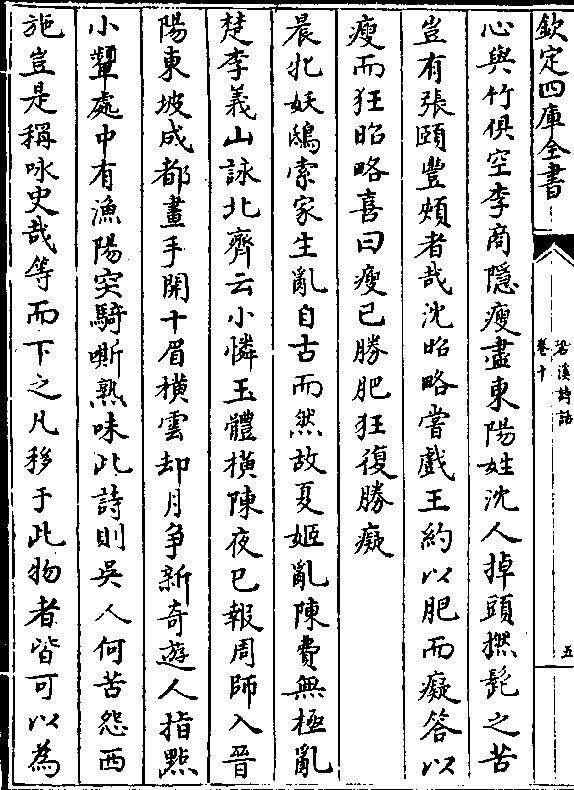 欽定四庫全書
䂬溪詩話
卷十
五
心與竹俱空李商隱瘦盡東陽姓沈人掉頭撚髭之苦
豈有張頤豐頰者哉沈昭略嘗戲王約以肥而癡答以
瘦而狂昭略喜曰瘦已勝肥狂復勝癡
晨牝妖鴟索家生亂自古而然故夏姬亂陳費無極亂
楚李義山詠北齊云小憐玉體橫陳夜已報周師入晉
陽東坡成都畫手開十眉橫雲却月争新奇遊人指㸃
小顰處中有漁陽突騎嘶熟味此詩則吳人何苦怨西
施豈是稱咏史哉等而下之凡移于此物者皆可以為